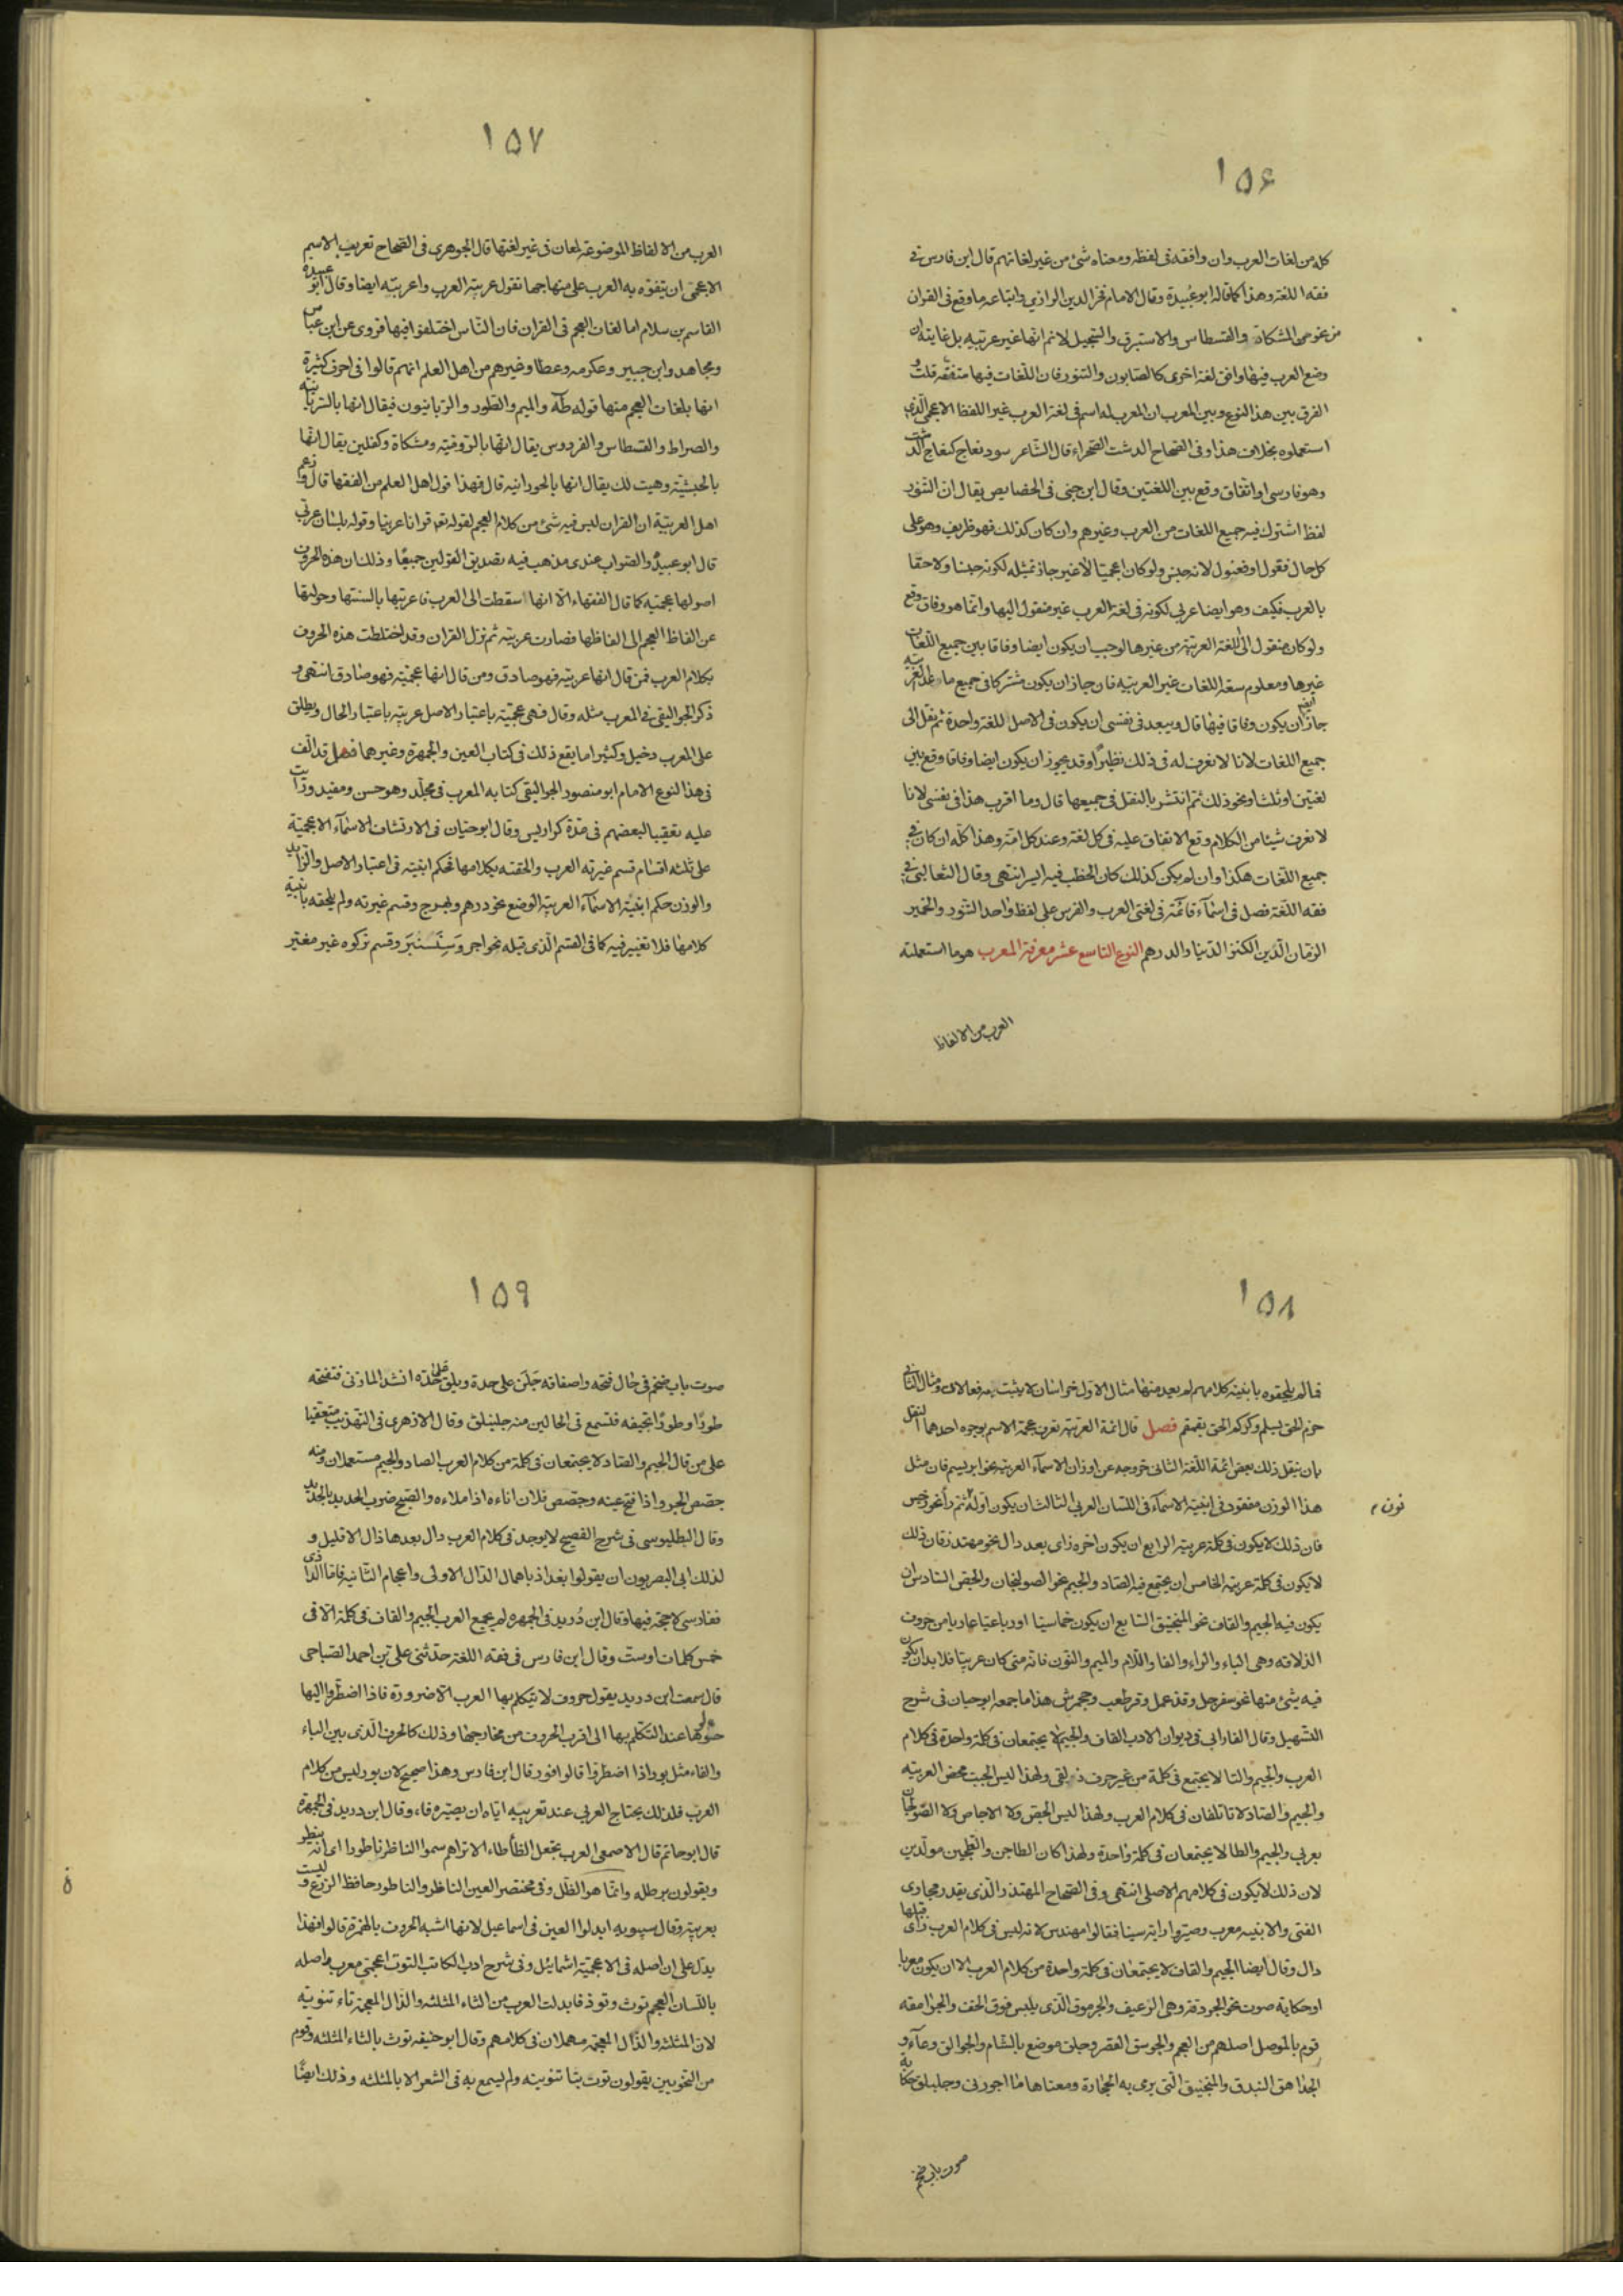 ١٥۶
كله من لغات العرب وان وافقه فى لفظه ومعناه شئ من غير لغاتهم قال ابن فارس فى
فقه اللغة وهذا كما قاله ابو عبيدة وقال الامام فخر الدين الرازي واتباعه ما وقع فى القران
من نحو المشكاة والقسطاس والاستبرق والسجيل لا نم انها غير عربيه بل غايته ان
وضع العرب فيها وافق لغة اخرى كالصابون والتنور فان اللغات فيها متفقه قلت و
الفرق بين هذا النوع وبين المعرب ان المعرب له اسم فى لغة العرب غير اللفظ الاعجمى الذى
استعملوه بخلاف هذا وفى الصحاح الدشت الصحراء قال الشاعر سود نعاج كنعاج الدشت
وهو فارسى او اتفاق وقع بين اللغتين وقال ابن جنى فى الخصايص يقال ان التنور
لفظ اشترك فيه جميع اللغات من العرب وغيرهم وان كان كذلك فهو ظريف وهو على
كل حال فعول او فعنول لانه جنس ولو كان اعجميا لا غير جاز تمثيله لكونه جنسا ولاحقا
بالعرب فكيف وهو ايضا عربى لكونه فى لغة العرب غير منقول اليها وانما هو وفاق وقع
ولو كان منقول الى اللغة العربيّة من غيرها لوجب ان يكون ايضا وفاقا بين جميع اللغات
غيرها ومعلوم سعة اللغات غير العربيه فان جاز ان يكون مشتركا فى جميع ما عدا العربيه
جاز ايضا ان يكون وفاقا فيها قال ويبعد فى نفسى ان يكون فى الاصل للغة واحدة ثم نقل الى
جميع اللغات لانا لا نعرف له فى ذلك نظيرا وقد يجوز ان يكون ايضا وفاقا وقع بين
لغتين او ثلث او نحو ذلك ثم انتشر بالنقل فى جميعها قال وما اقرب هذا فى نفسى لانا
لا نعرف شيئا من الكلام وقع الاتفاق عليه فى كل لغة وعند كل امة وهذا كله ان كان فى
جميع اللغات هكذا وان لم يكن كذلك كان الخطب فيه ايسر انتهى وقال الثعالبى فى
فقه اللغة فصل فى اسمآء قائمة فى لغتى العرب والفرس على لفظ واحد التنور والخمير
الزمان الدين الكنز الدنيا والدرهم النوع التاسع عشر معرفة المعرب هو ما استعملته
العرب من الالفاظ
١٥٧
العرب من الالفاظ الموضوعة لمعان فى غير لغتها قال الجوهرى فى الصحاح تعريب الاسم
الاعجمى ان يتفوه به العرب على منهاجها تقول عربته العرب واعربته ايضا وقال ابو عبيده
القاسم بن سلام اما لغات العجم فى القران فان الناس اختلفوا فيها فروى عن ابن عباس
ومجاهد وابن جبير وعكرمه وعطا وغيرهم من اهل العلم انهم قالوا فى احرف كثيرة
انها بلغات العجم منها قوله طه واليم والطور والربانيون فيقال انها بالسريانيه
والصراط والقسطاس والفردوس يقال انها بالروميه ومشكاة وكفلين يقال انها
بالحبشية وهيت لك يقال انها بالحورانيه قال فهذا قول اهل العلم من الفقها قال وزعم
اهل العربية ان القران ليس فيه شئ من كلام العجم لقوله تعه قرانا عربيا وقوله بلسان عربى
قال ابو عبيد والصواب عندى مذهب فيه تصديق القولين جميعًا وذلك ان هذه الحروف
اصولها عجميه كما قال الفقهاء الا انها سقطت الى العرب فاعربتها بالسنتها وحولتها
عن الفاظ العجم الى الفاظها فصارت عربيه ثم نزل القران وقد اختلطت هذه الحروف
بكلام العرب فمن قال انها عربيّه فهو صادق ومن قال انها عجميّة فهو صادق انتهى و
ذكر الجواليقى فى المعرب مثله وقال فهى عجميّة باعتبار الاصل عربيه باعتبار الحال ويطلق
على المعرب دخيل وكثيرا ما يقع ذلك فى كتاب العين والجمهرة وغيرهما فصل قد الف
فى هذا النوع الامام ابو منصور الجواليقى كتابه المعرب فى مجلد وهو حسن ومفيد ورأيت
عليه تعقيبا لبعضهم فى عدة كراريس وقال ابو حيان فى الارتشاف الاسمآء الاعجمية
على ثلثه اقسام قسم غيرته العرب والحقته بكلامها فحكم ابنيته فى اعتبار الاصل والزايد
والوزن حكم ابنية الاسمآء العربية الوضع نحو درهم وبهرج وقسم غيرته ولم يلحقه بابنية
كلامها فلا تغيير فيه كما فى القسم الذى قبله نحو اجر وسنسنبر وقسم تركوه غير مغير
١٥٨
فما لم يلحقوه بابنيه كلامهم لم يعد منها مثال الاول خراسان لا يثبت به فعالان ومثال الثانى
خرم الحق بسلم وكركم الحق بقمقم فصل قال ائمة العربية تعرف عجمة الاسم بوجوه احدها النقل
بان ينقل ذلك بعض ائمة اللغة الثانى خروجه عن اوزان الاسمآء العربيه نحو ابريسم فان مثل
هذا الوزن مفقود فى ابنية الاسمآء فى اللسان العربى الثالث ان يكون اوله ثم رأ نحو نرجس
نون م
فان ذلك لا يكون فى كلمة عربيه الرابع ان يكون اخره زاى بعد دال نحو مهندز فان ذلك
لا يكون فى كلمة عربيه الخامس ان يجتمع فيه الصاد والجيم نحو الصولجان والجص السادس ان
يكون فيه الجيم والقاف نحو المنجنيق السابع ان يكون خماسيا او رباعيا عاريا من حروف
الذلاقه وهى الباء والراء والفا واللام والميم والنون فانه متى كان عربيا فلا بد ان يكون
فيه شئ منها نحو سفرجل وقذعمل وقرطعب وجحمرش هذا ما جمعه ابو حيان فى شرح
التسهيل وقال الفارابى فى ديوان الادب القاف والجيم لا يجتمعان فى كلمة واحدة فى كلام
العرب والجيم والتا لا يجتمع فى كلمة من غير حرف ذولقى ولهذا ليس الجبت محض العربيه
والجيم والصاد لا تاتلفان فى كلام العرب ولهذا ليس الجص ولا الاجاص ولا الصولجان
بعربى والجيم والطا لا يجتمعان فى كلمة واحدة ولهذا كان الطاجن والطجين مولدين
لان ذلك لا يكون فى كلامهم الاصلى انتهى وفى الصحاح المهندز الذى يقدر مجارى
القنى والابنيه معرب وصيروا زايه سينا فقالوا مهندس لانه ليس فى كلام العرب زاى قبلها
دال وقال ايضا الجيم والقاف لا يجتمعان فى كلمة واحدة من كلام العرب الا ان يكون معربا
او حكاية صوت نحو الجردقة وهى الرغيف والجرموق الذى يلبس فوق الخف والجرامقه
قوم بالموصل اصلهم من العجم والجوسق القصر وجلق موضع بالشام والجوالق وعآء و
الجلاهق البندق والمنجنيق التى يرمى به الحجارة ومعناها ما اجودنى وجلنبلق حكاية
صوت باب ضخم
١٥٩
صوت باب ضخم فى حال فتحه واصفاقه جلن على حدة وبلق على حدة انشد المازنى فتفتحه
طورًا وطورًا تجيفه فتسمع فى الحالين منه جلنبلق وقال الازهرى فى التهذيب متعقبا
على من قال الجيم والصاد لا يجتمعان فى كلمة من كلام العرب الصاد والجيم مستعملان ومنه
جصص الجرو اذا فتح عينه وجصص فلان اناءه اذا ملاءه والصج ضرب الحديد بالحديد
وقال البطليوسى فى شرح الفصيح لا يوجد فى كلام العرب دال بعدها ذال الا قليل و
لذلك ابى البصريون ان يقولوا بغداذ باهمال الدال الاولى واعجام الثانيه فاما الداذى
ففارسى لا حجة فيها وقال ابن دُريد فى الجمهره لم يجمع العرب الجيم والقاف فى كلمة الا فى
خمس كلمات او ست وقال ابن فارس فى فقه اللغة حدثنى على بن احمد الصباحى
قال سمعت ابن دريد يقول حروف لا يتكلم بها العرب الا ضرورة فاذا اضطروا اليها
حولوها عند التكلم بها الى اقرب الحروف من مخارجها وذلك كالحرف الذى بين الباء
والفاء مثل بور اذا اضطروا قالوا فور قال ابن فارس وهذا صحيح لان بور ليس من كلام
العرب فلذلك يحتاج العربى عند تعريبه اياه ان يصيره فاء وقال ابن دريد فى الجمهرة
قال ابو حاتم قال الاصمعى العرب تجعل الظأ طاء الا تراهم سموا الناظر ناطورا اى انه ينظر
ويقولون برطله وانما هو الظل وفى مختصر العين الناظر والناطور حافظ الزرع وليست
بعربية وقال سيبويه ابدلوا العين فى اسماعيل لانها اشبه الحروف بالهمزة قالوا فهذا
يدل على ان اصله فى الاعجمية اشمائيل وفى شرح ادب الكاتب التوت اعجمى معرب واصله
باللسان العجم توث وتوذ فابدلت العرب من الثاء المثلثه والذال المعجمة تاء تنويه
لان المثلثه والذال المعجمه مهملان فى كلامهم وقال ابو حنيفه توث بالثاء المثلثه وقوم
من النحويين يقولون توت بتا تنويته ولم يسمع به فى الشعر الا بالمثلثه وذلك ايضًا